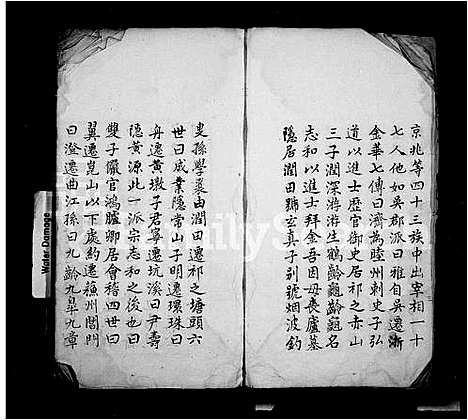 京兆等四十三族中出宰相一十
七人他如吳郡派曰雅自吳遷浙
金華七傳曰濟為睦州刺史子弘
道以進士歷官御史居祁之赤山
三子潤深游游生鶴齡龜齡龜名
志和以進士拜金吾因母喪廬墓
隱居潤田號玄真子別號烟波釣
叟孫學裘由潤田遷祁之塘頭六
世曰咸業隱常山子明遷環珠曰
舟遷黃墩子君寧遷坑溪曰尹壽
隱黃源此一派宗志和之後也曰
雙子儼官鴻臚卿居會稽四世曰
翼遷崑山以下處約遷蘓州閶門
曰澄遷曲江孫曰九齡九臯九章
Water Damage
FamilySearch